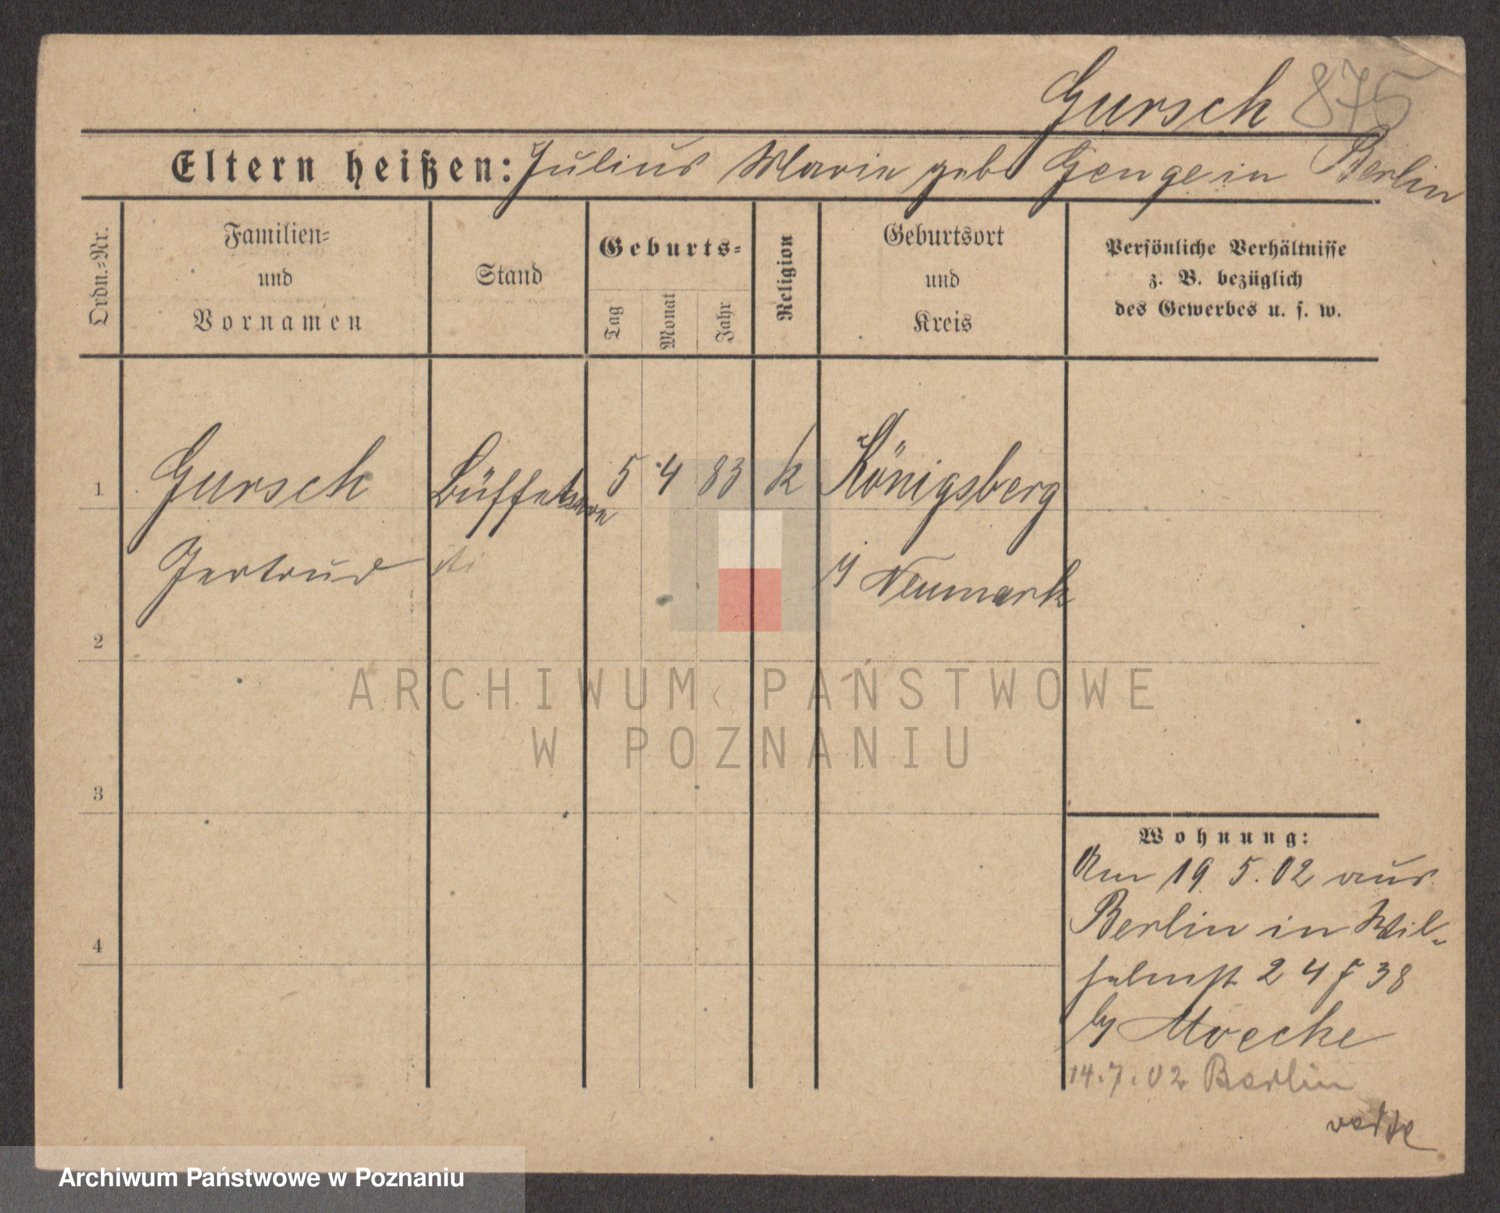 Gursch 875
Eltern heißen: Julius Marie geb Genge in Berlin
Ordn.=Nr.
Familien=
und
Vornamen
Stand
Geburts=
Tag
Monat
Jahr
Religion
Geburtsort
und
Kreis
Persönliche Verhältnisse
z. B. bezüglich
des Gewerbes u. s. w.
1
Gursch
Gertrud
Büffet
5 4 83 k
Königsberg
Neumark
2
3
4
ARCHIWUM PAŃSTWOWE
W POZNANIU
Wohnung:
Am 19 5. 02 aus
Berlin in Wil-
helmst 24 38
by Moecke
14. 7. 02 Berlin
Archiwum Państwowe w Poznaniu